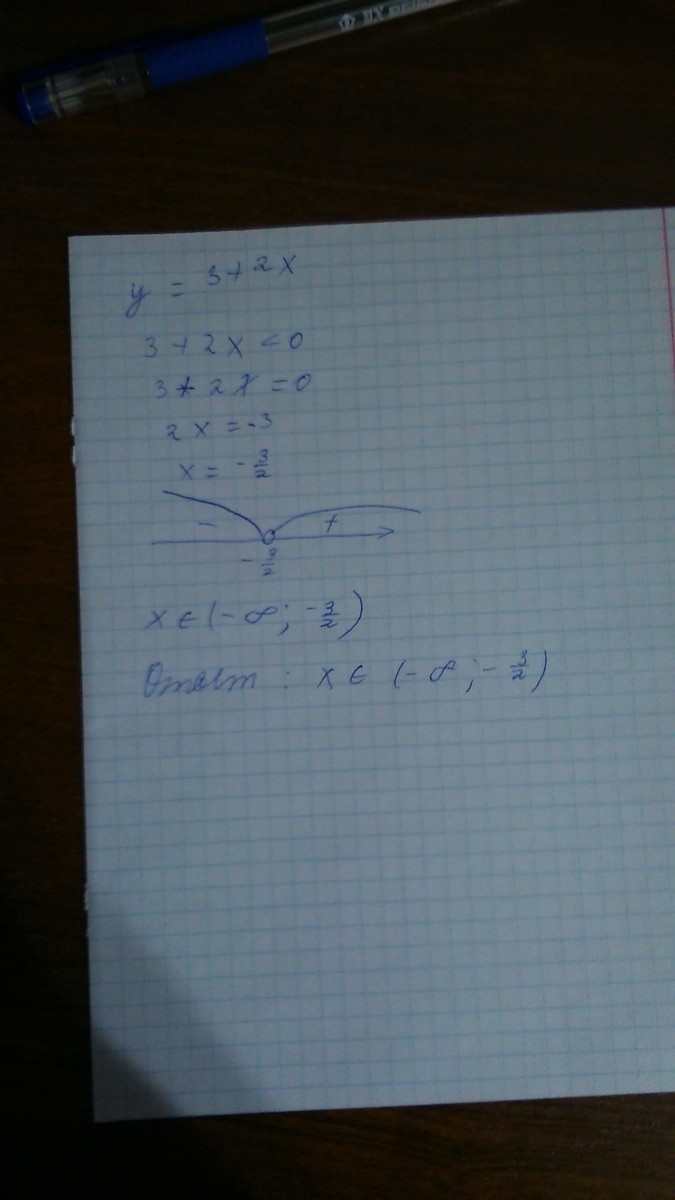 y = 3+2x
3+2x<0
3+2x=0
2x=-3
x=-3/2
- +
-3/2
x∈(-∞;-3/2)
Ответ: x∈(-∞;-3/2)